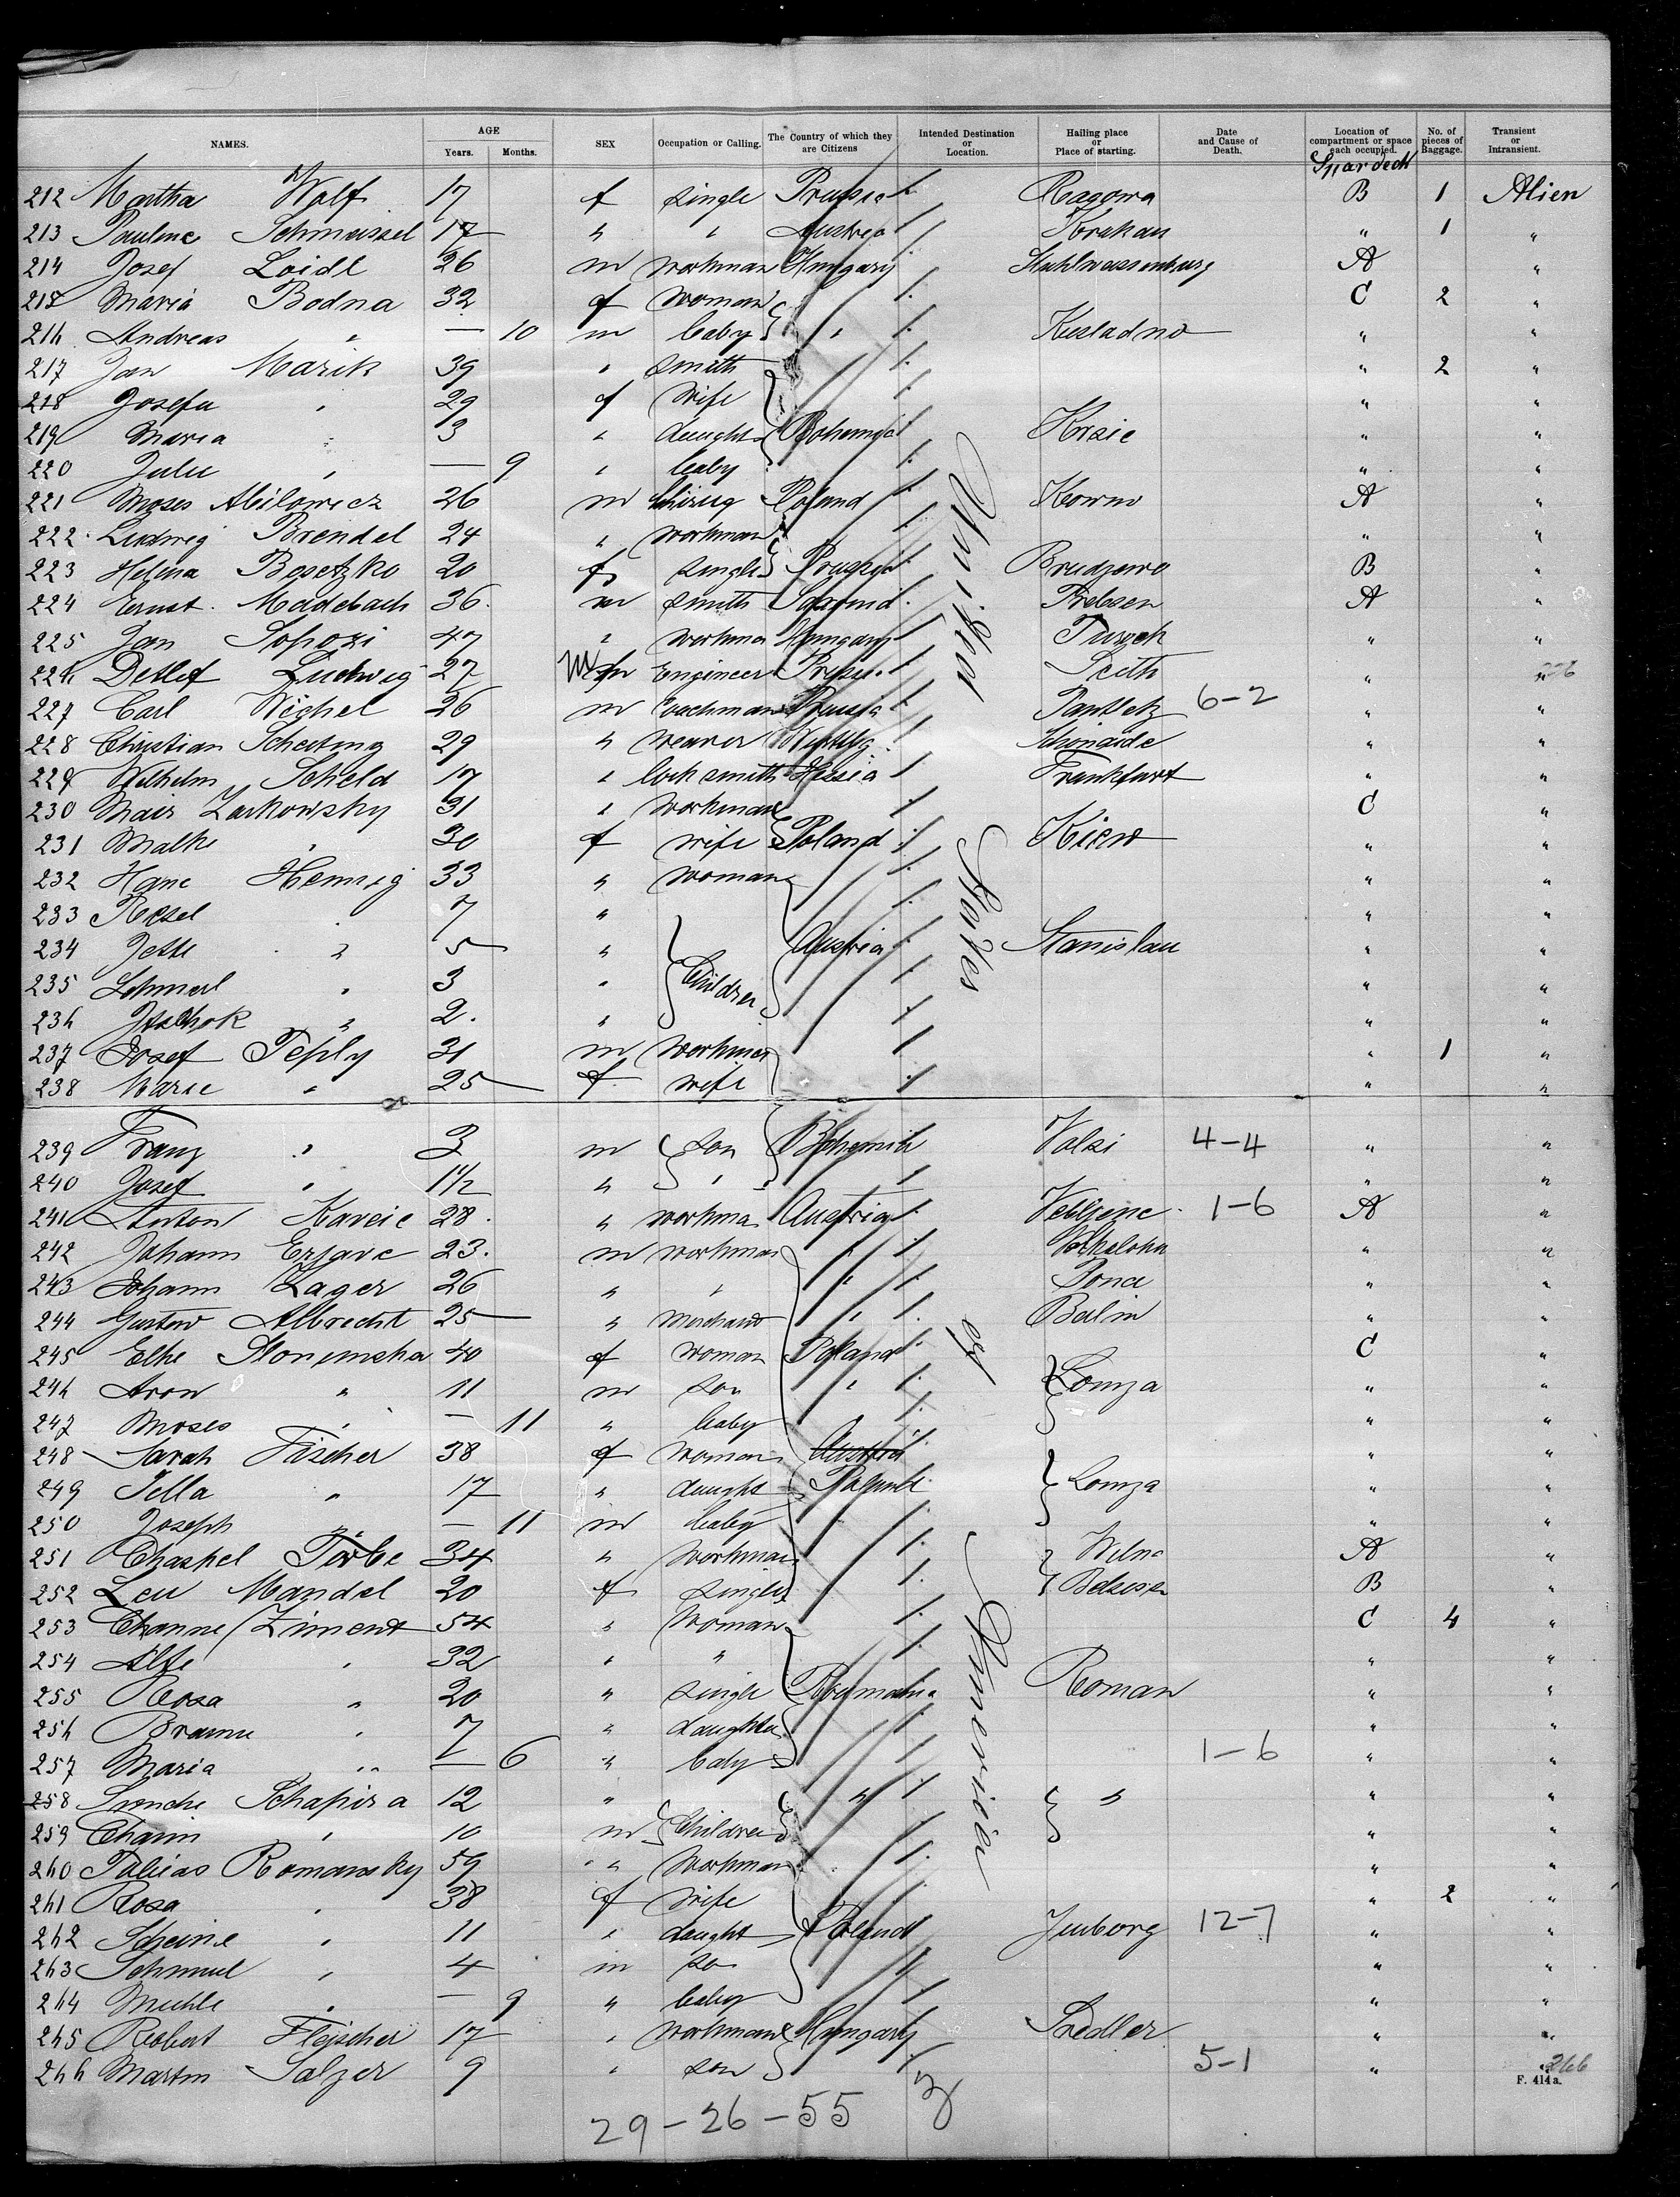 NAMES. AGE Years. Months. SEX Occupation or Calling. The Country of which they are Citizens Intended Destination or Location. Hailing place or Place of starting. Date and Cause of Death. Location of compartment or space each occupied. No. of pieces of Baggage. Transient or Intransient.
212 Martha Wolf 17 f single Prussia Ragowa B 1 Alien
213 Pauline Schmeissel 17 " " Austria Krakau " 1 "
214 Josef Loidl 26 m workman Hungary Stuhlweissenburg A "
215 Maria Bodna 32 f woman C 2 "
216 Andreas " — 10 m baby " "  "
217 Jan Marik 39 " smith " 2 "
218 Josefa " 29 f wife " "
219 Maria " 3 " daught Bohemia " "
220 Julie " — 9 " baby " "
221 Moses Abilowicz 26 m Poland Kowno A "
222 Ludwig Brendel 24 " workman " "
223 Helena 20 f single Prussia Brudzewo B "
224 Ernst Madebach 36 m smith Trebsen A "
225 Jan 47 " workma Hungary Turzek " "
226 Detlef Ludwig 27 m Engineer " " 226
227 Carl Wichel 26 m Coachman Prussia 6-2 " "
228 Christian 29 " weaver " "
229 Wilhelm Scheld 17 " locksmith Hessia Frankfurt " "
230 Zarkowsky 31 " workman C "
231 Malke " 30 f wife Poland Kiew " "
232 Hane Hennig 33 " woman " "
233 Resel " 7 " " "
234 Jette " 5 " Austria Stanislau " "
235 Schmerl " 3 " Children " "
236 " 2 " " "
237 Josef Teply 31 m workman " 1 "
238 Marie " 25 f wife " "
239 Franz " 3 m son Bohemia 4-4 " "
240 Josef " 1½ " " " "
241 Anton 28 " workma Austria 1-6 A "
242 Johann 23 m workman " " "
243 Johann Zager 26 " " " " "
244 Gustav Albrecht 25 " Merchant " " "
245 Elke Slonimska 40 f woman Poland C "
246 Aron " 11 m son " Lomza " "
247 Moses " — 11 " baby " "
248 Sarah Fischer 38 f woman Austria " "
249 " 17 " daught Poland Lomza " "
250 Joseph " — 11 m baby " "
251 Chaskel 34 " workman Wilna A "
252 Mandel 20 f single B "
253 Channe Ziment 54 " woman C 4 "
254 " 32 " " " "
255 Rosa " 20 " single Roumania Roman " "
256 " 7 " daughter " "
257 Maria " — 6 " baby 1-6 " "
258 Schapira 12 " " " " "
259 Chaim " 10 m Children " "
260 Tobias Romansky 59 " workman " "
261 Rosa " 38 f wife " 2 "
262 Scheine " 11 " daught Poland 12-7 " "
263 Schmul " 4 m so " "
264 " — 9 " baby " "
265 Robert Fleischer 17 " workman Hungary " "
266 Martin Salzer 9 " son 5-1 " " 266
United States of America
F. 414 a.
29-26-55